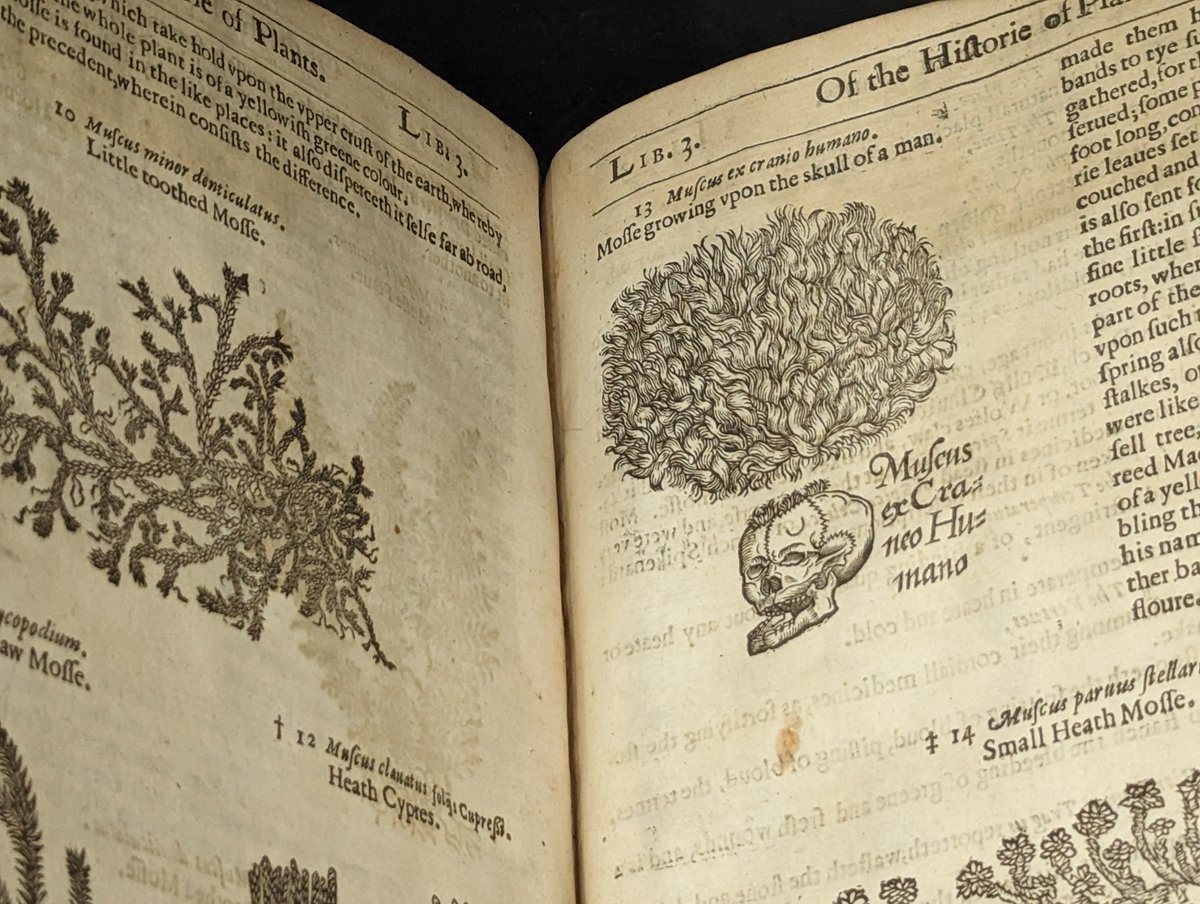 ie of Plants.
LIB. 3.
which take hold vpon the vpper crust of the earth, whereby
the whole plant is of a yellowish greene colour.
Mosse is found in the like places; it also disperceth it selfe far abroad,
the precedent, wherein consists the difference.
10 Muſcus minor denticulatus.
Little toothed Moſſe.
ycopodium.
aw Moſſe.
† 12 Muſcus clauatus folijs Cupreſſi.
Heath Cypres.
Of the Hiſtorie of Pla
LIB. 3.
13 Muſcus ex cranio humano.
Moſſe growing vpon the skull of a man.
Muſcus
ex Cra=
neo Hu=
mano
‡ 14 Muſcus paruus ſtellari
Small Heath Moſſe.
made them h
bands to tye ſu
gathered, for th
ſerued; ſome p
foot long, con
rie leaues ſet
couched and
is alſo ſent fo
the firſt: in ſ
fine little ſ
roots, wher
part of the
vpon ſuch t
ſpring alſo
ſtalkes, o
were like
fell tree,
reed Mac
of a yell
bling th
his nam
ther ba
floure.